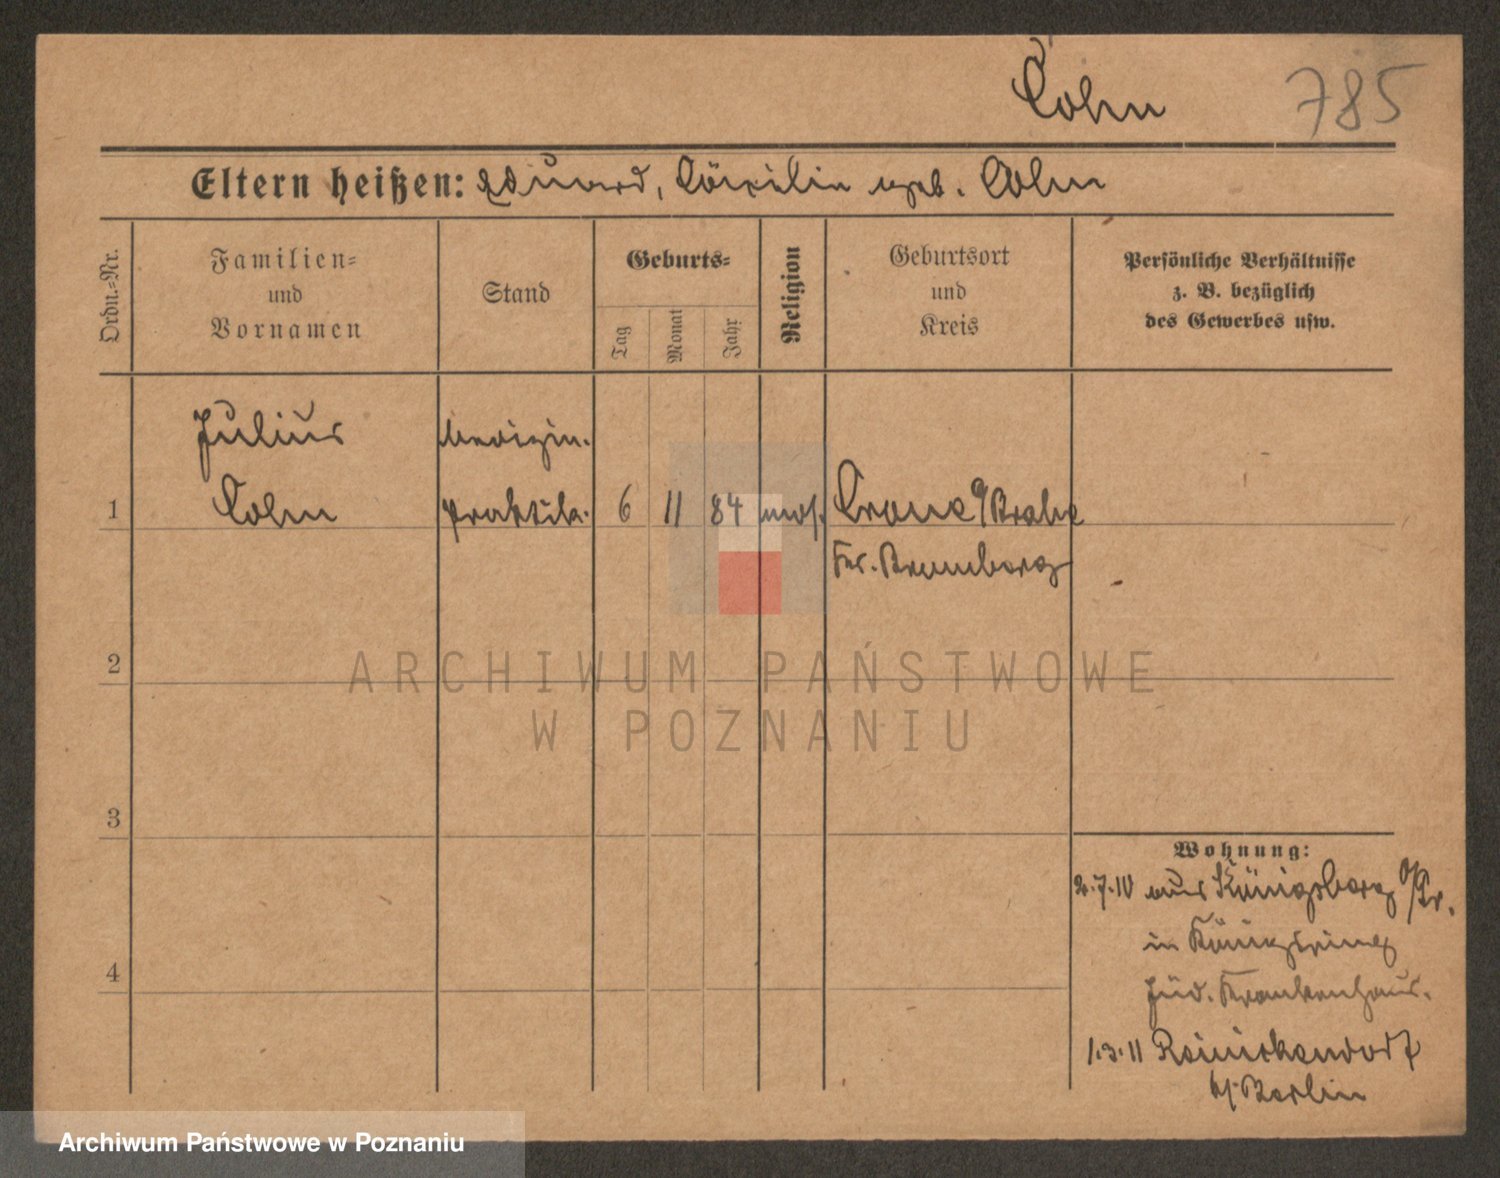 Cohn 785
Eltern heißen: Eduard, Cäcilie geb. Cohn
Ordn.-Nr.
Familien-
und
Vornamen
Stand
Geburts-
Tag
Monat
Jahr
Religion
Geburtsort
und
Kreis
Persönliche Verhältnisse
z. B. bezüglich
des Gewerbes usw.
Julius Medizin.
1 Cohn praktik. 6 11 84 mos. Crone a/Brahe
Kr. Bromberg
2
ARCHIWUM PAŃSTWOWE
W POZNANIU
3
Wohnung:
2.7.10 aus Königsberg i/Pr.
4
in Königsring
Jüd. Krankenhaus.
1.3.11 Reinickendorf
b/Berlin
Archiwum Państwowe w Poznaniu